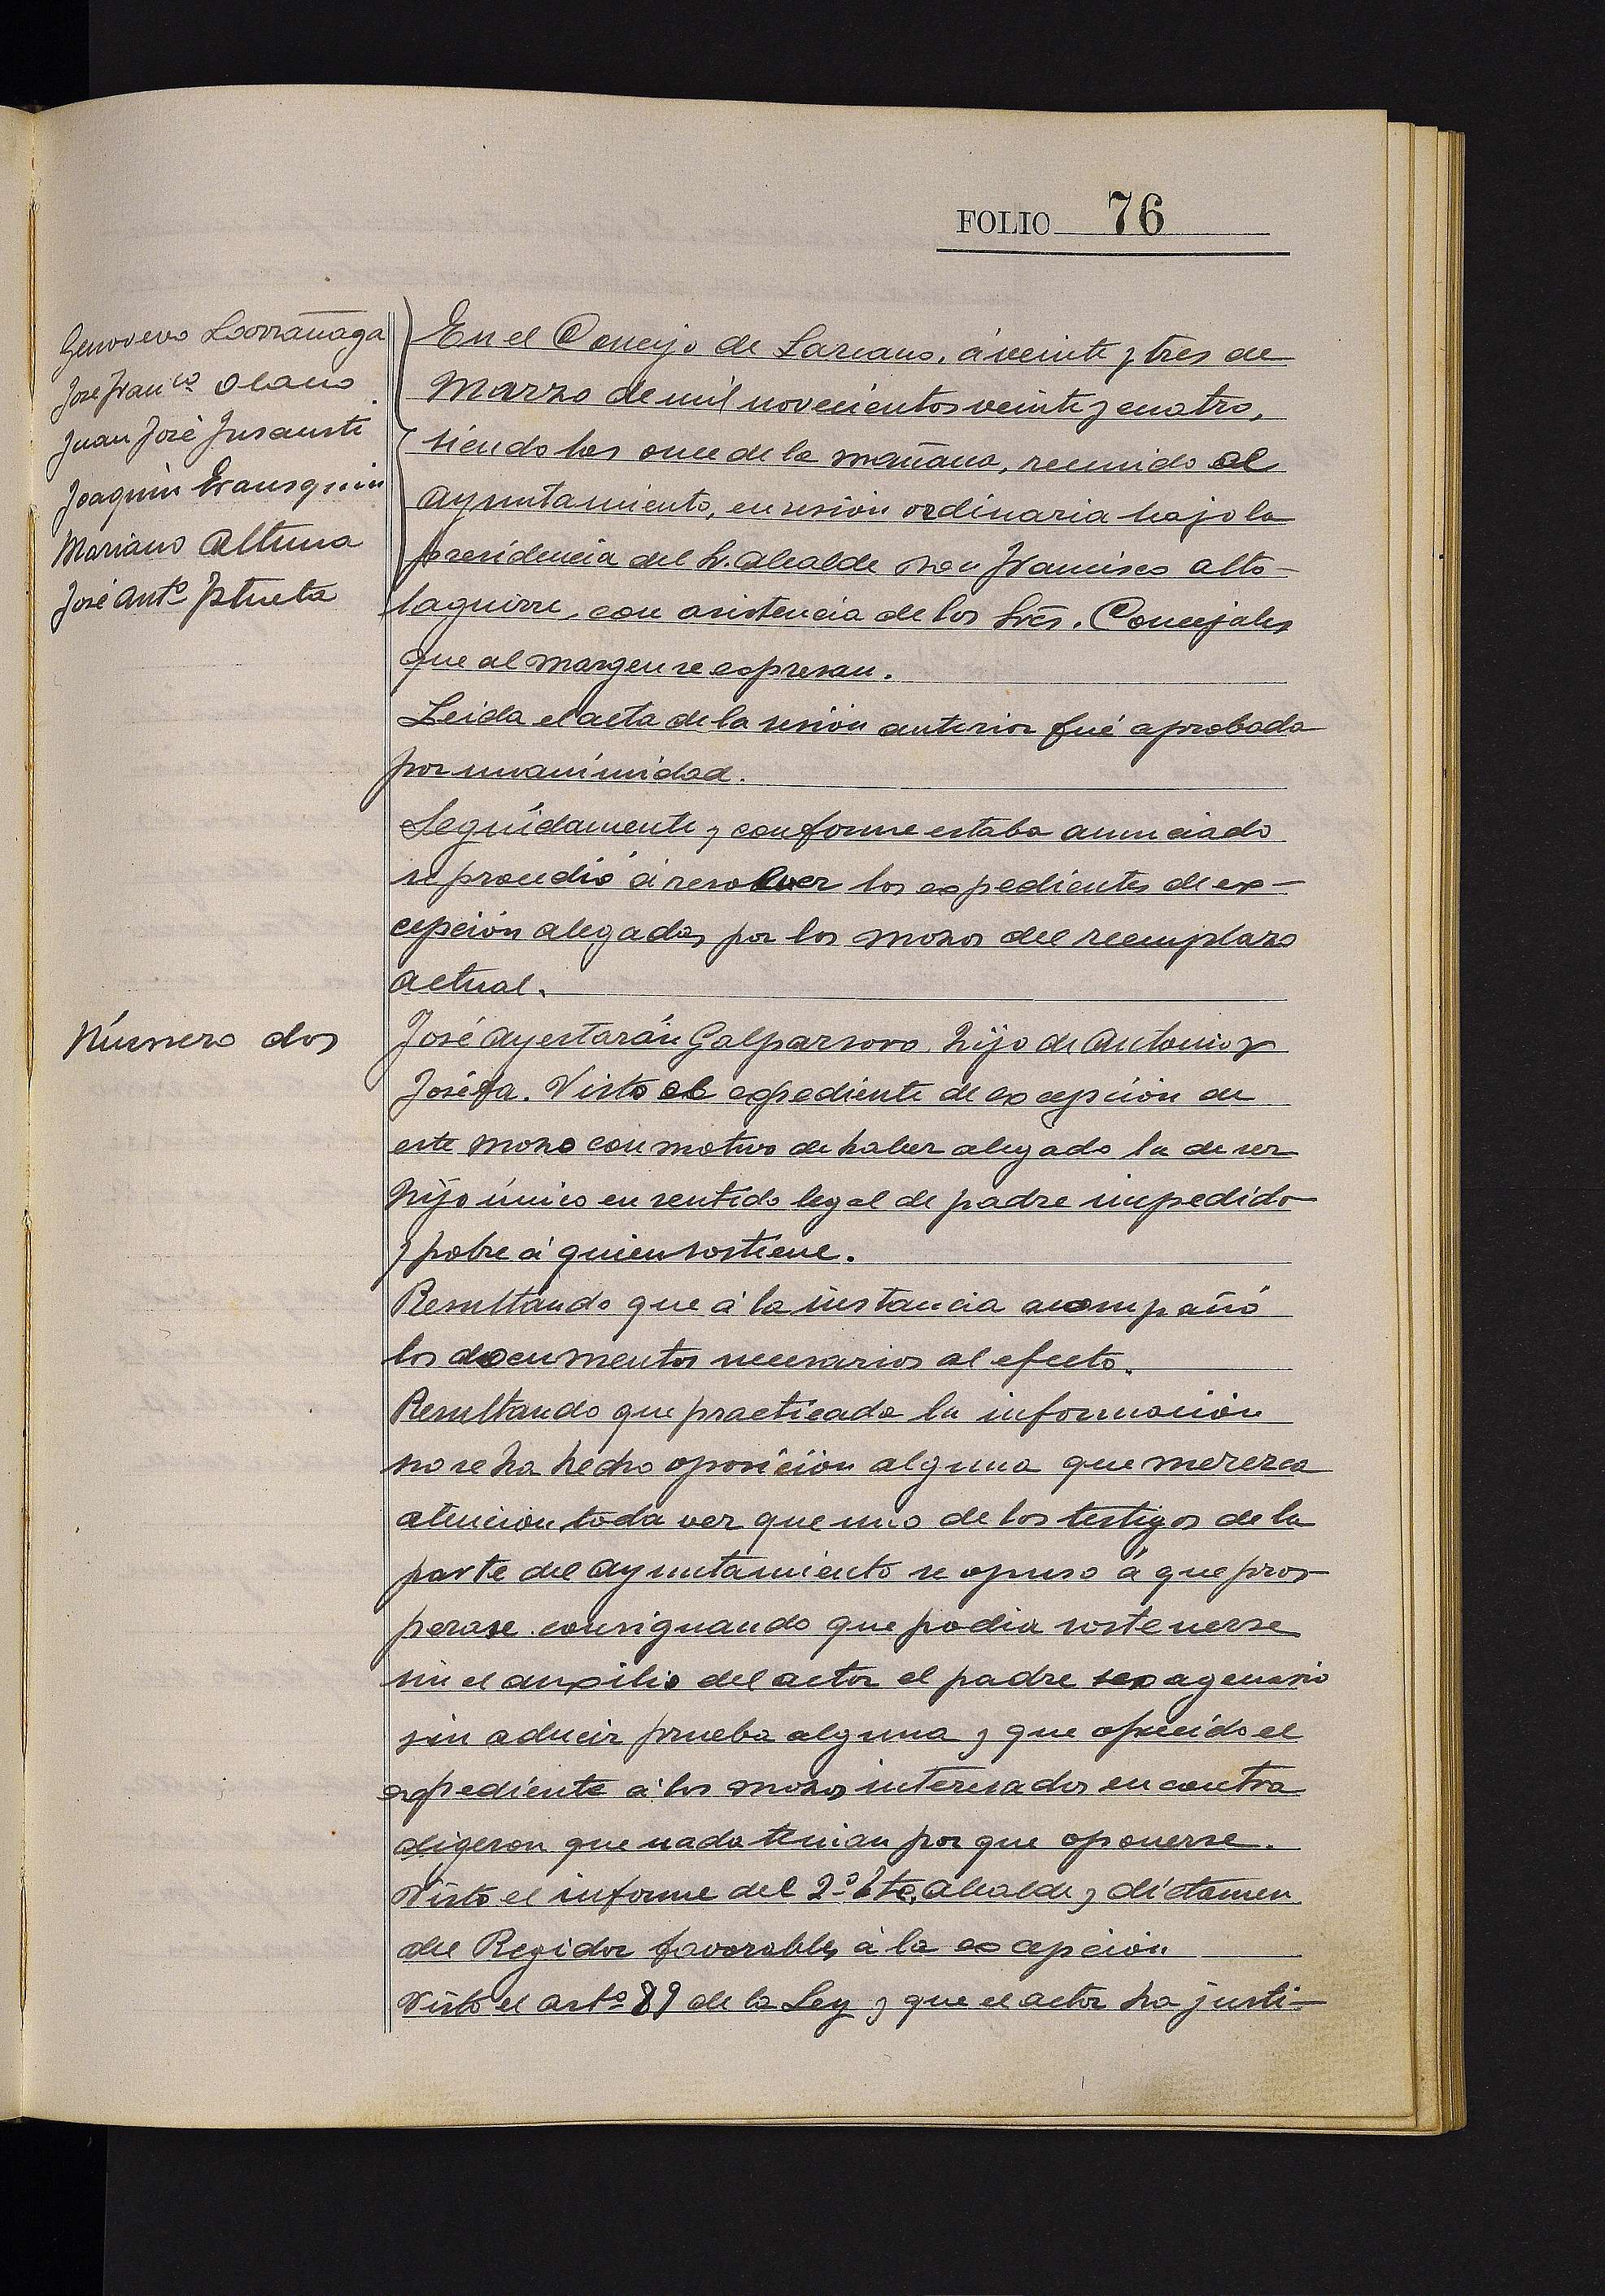 FOLIO 76
Genoveva Larrañaga
José Franco Olano
Juan José Insausti
Joaquin Erausquin
Mariano Altuna
José Anto Iztueta
En el Concejo de Lazcano, á veinte y tres de
Marzo de mil novecientos veinte y cuatro,
siendo las once de la mañana, reunido el
Ayuntamiento, en sesión ordinaria bajo la
presidencia del Sr. Alcalde Don Francisco Alto-
laguirre, con asistencia de los Sres. Concejales
que al margen se espresan.
Leida el acta de la sesión anterior fué aprobada
por unanimidad.
Seguidamente y conforme estaba anunciado
se procedió á resolver los expedientes de ex-
cepción alegadas por los mozos del reemplazo
actual.
Número dos
José Ayestarán Galparsoro, hijo de Antonio y
Joséfa. Visto el expediente de excepción de
este mozo con motivo de haber alegado la de ser
hijo único en sentido legal de padre impedido
y pobre á quien sostiene.
Resultando que á la instancia acompañó
los documentos necesarios al efecto.
Resultando que practicada la información
no se ha hecho oposición alguna que merezca
atencion toda vez que uno de los testigos de la
parte del Ayuntamiento se opuso á que pros-
perase consignando que podia sostenerse
sin el auxilio del actor el padre sexagenario
sin aducir prueba alguna y que ofrecido el
expediente á los mozos interesados en contra
digeron que nada tenian por que oponerse.
Visto el informe del 2º tte. Alcalde y dictamen
del Regidor favorables á la excepción
Visto el arto 89 de la Ley y que el actor ha justi-